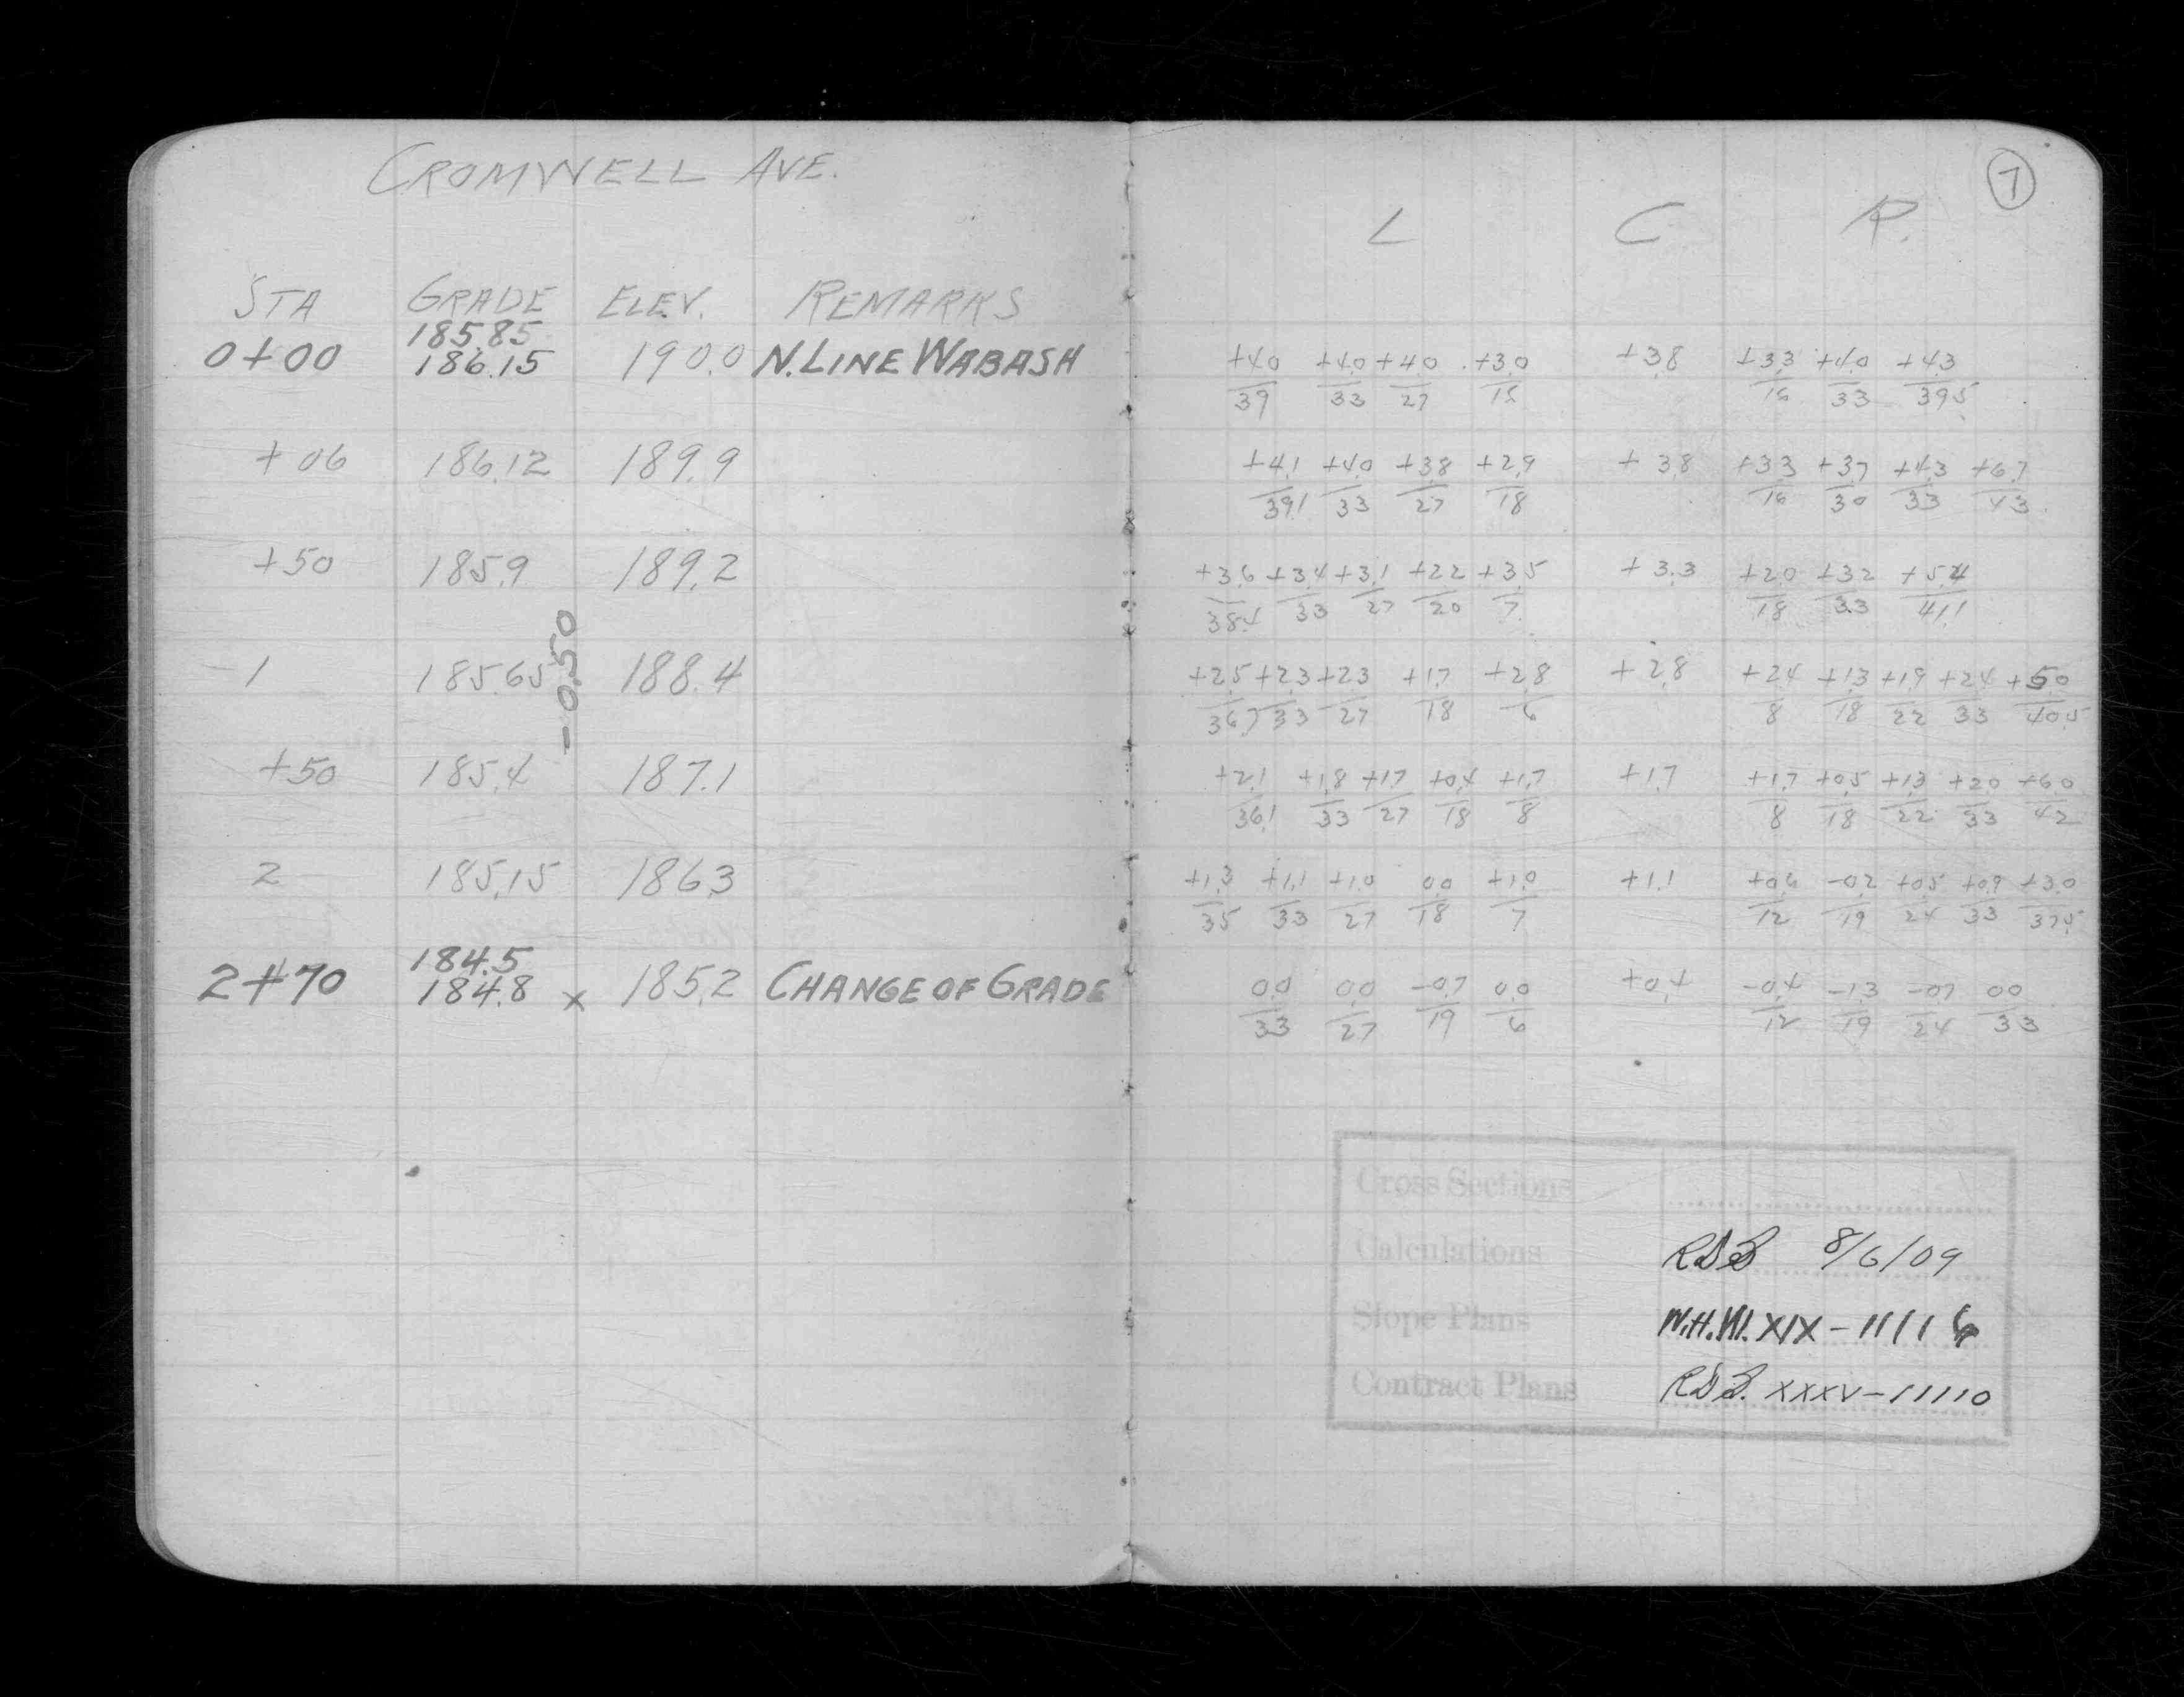 CROMWELL AVE.
STA GRADE ELEV. REMARKS
185.85
0+00 186.15 190.0 N. LINE WABASH
+06 186.12 189.9
+50 185.9 189.2
-0.50
1 185.65 188.4
+50 185.4 187.1
2 185.15 186.3
184.5
2+70 184.8 x 185.2 CHANGE OF GRADE
7
L C R.
+4.0 +4.0 +4.0 +3.0 +3.8 +3.3 +4.0 +4.3
39 33 27 18 16 33 39.5
+4.1 +4.0 +3.8 +2.9 +3.8 +3.3 +3.7 +4.3 +6.7
39.1 33 27 18 16 30 33 43
+3.6 +3.4 +3.1 +2.2 +3.5 +3.3 +2.0 +3.2 +5.4
38.4 33 27 20 7 18 33 41.1
+2.5 +2.3 +2.3 +1.7 +2.8 +2.8 +2.4 +1.3 +1.9 +2.4 +5.0
36.7 33 27 18 6 8 18 22 33 40.5
+2.1 +1.8 +1.7 +0.4 +1.7 +1.7 +1.7 +0.5 +1.3 +2.0 +6.0
36.1 33 27 18 8 8 18 22 33 42
+1.3 +1.1 +1.0 0.0 +1.0 +1.1 +0.6 -0.2 +0.5 +0.9 +3.0
35 33 27 18 7 12 19 24 33 37.5
0.0 0.0 -0.7 0.0 +0.4 -0.4 -1.3 -0.7 0.0
33 27 19 6 12 19 24 33
Cross Sections
Calculations RDB 8/6/09
Slope Plans W.H.W. XIX-1111
Contract Plans RDB. XXXV-11110